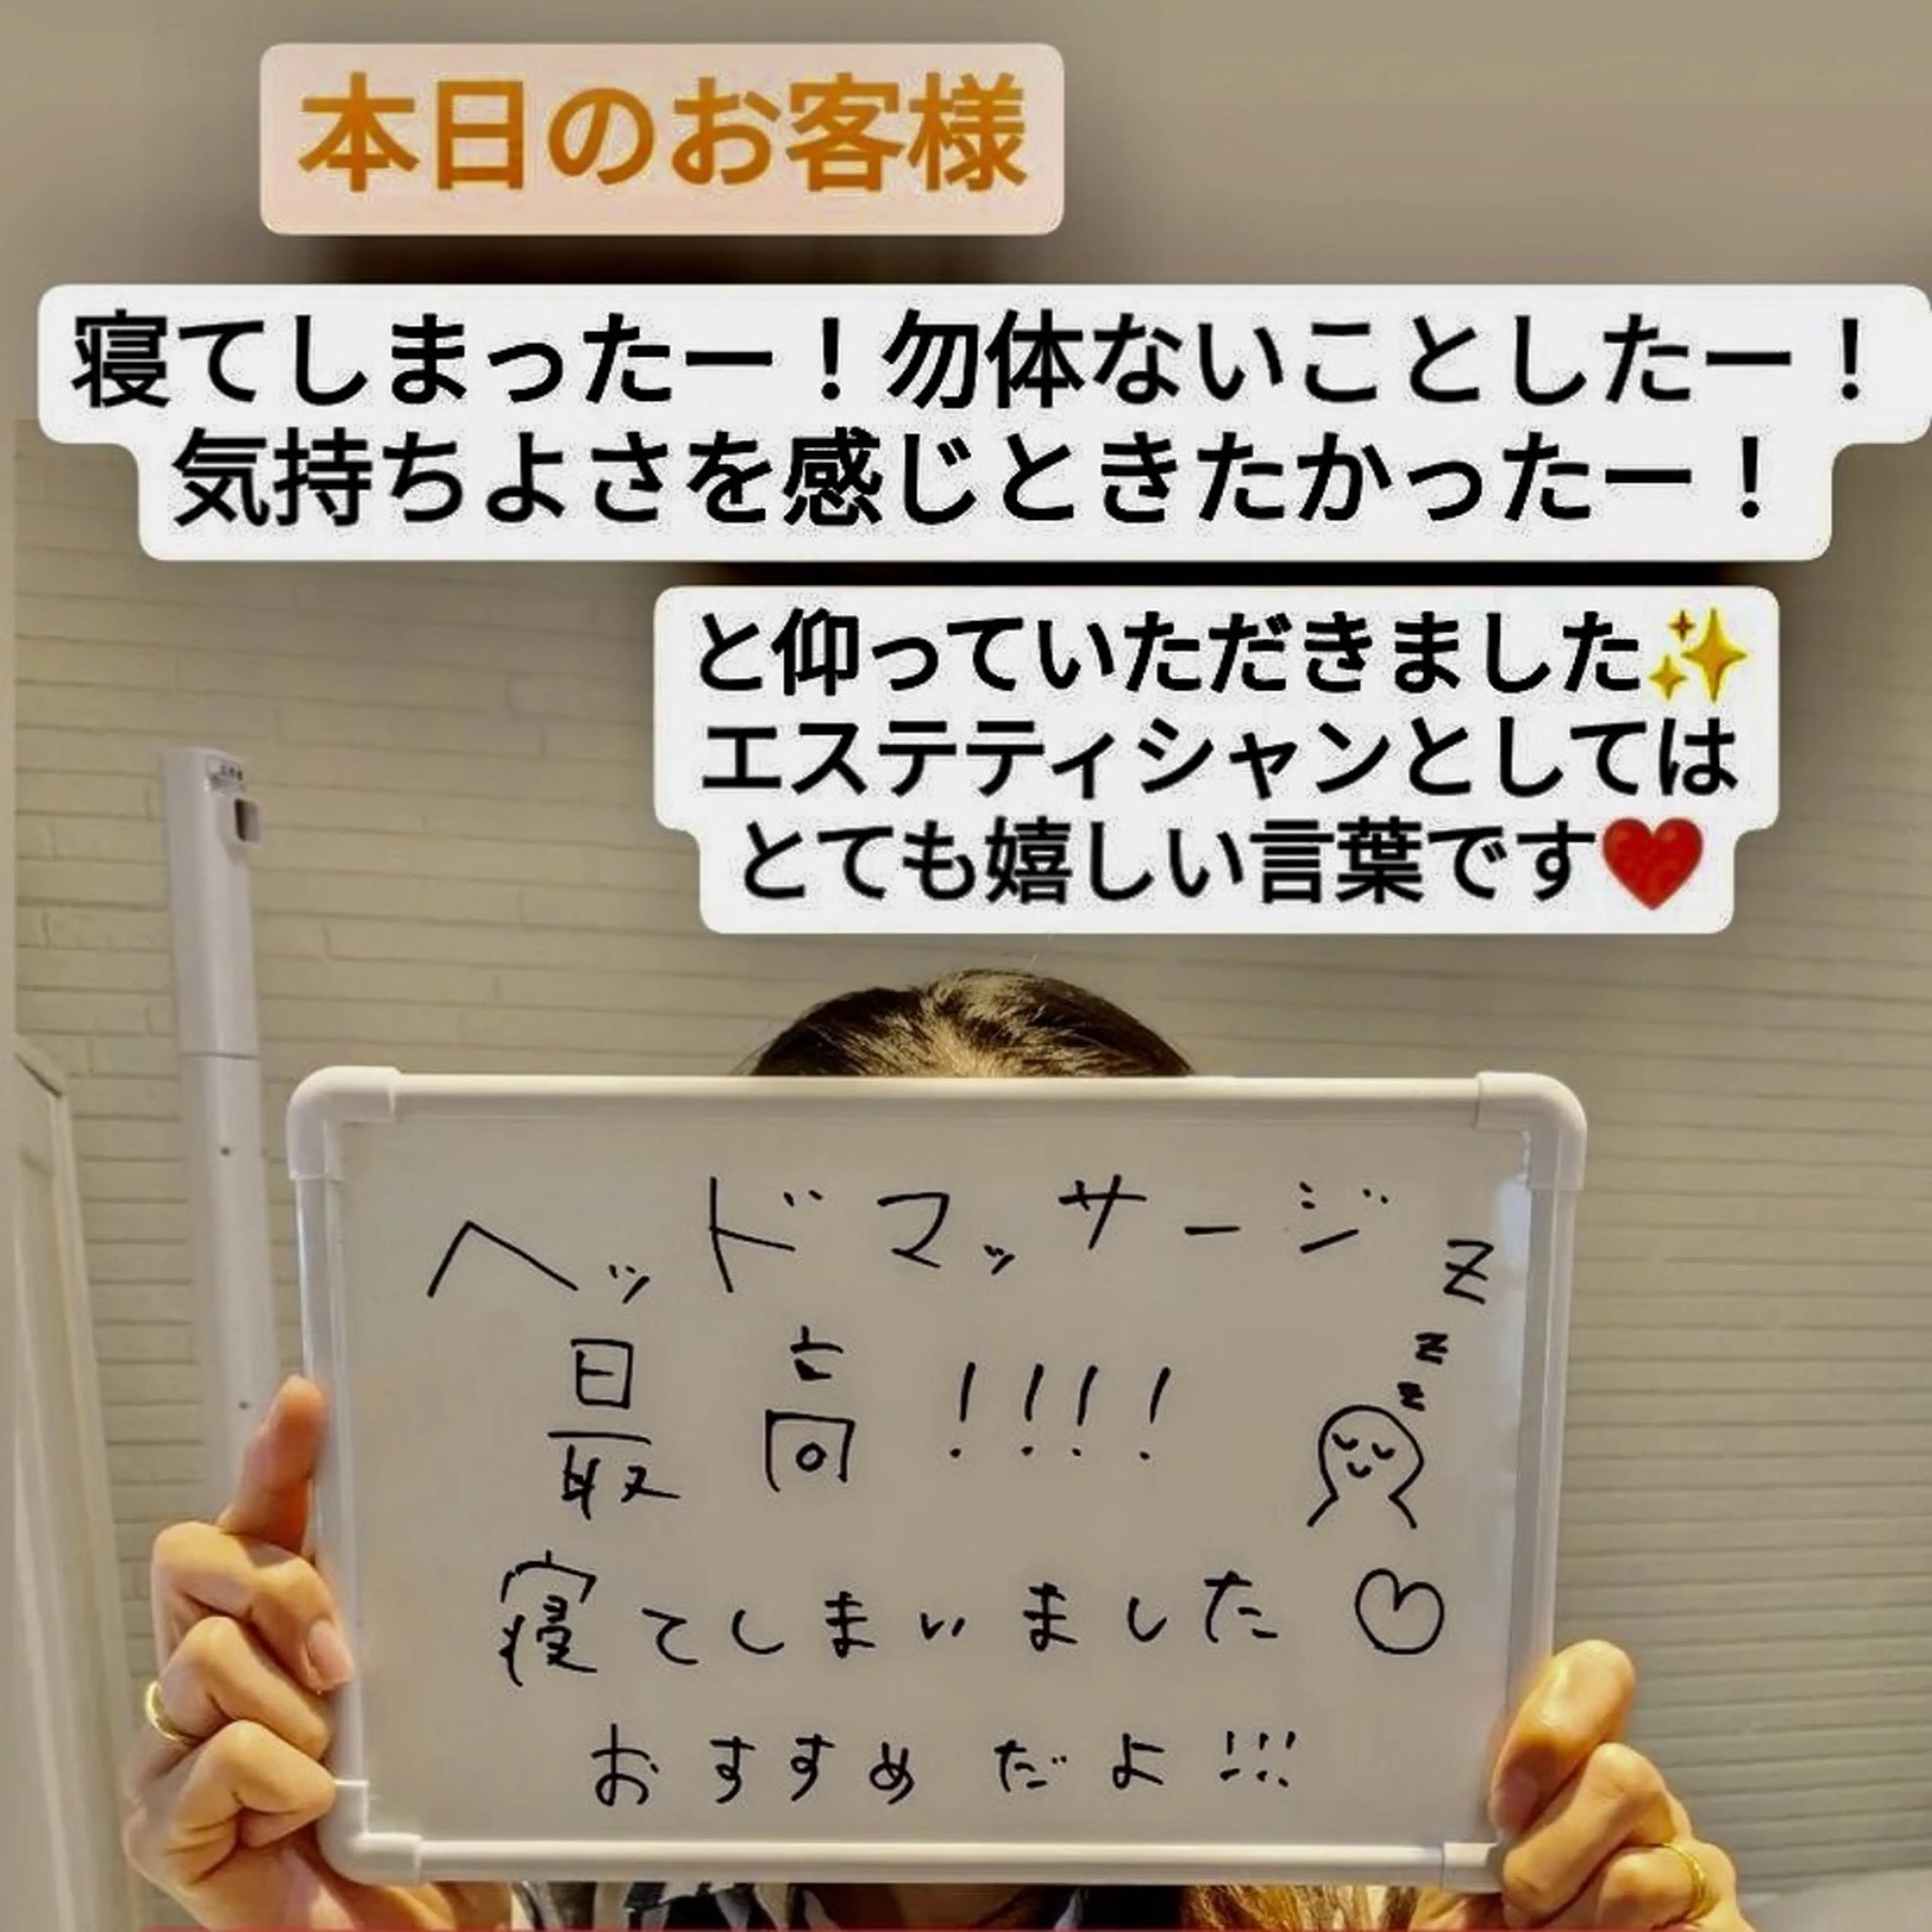 本日のお客様
寝てしまったー！勿体ないことしたー！
気持ちよさを感じときたかったー！
と仰っていただきました✨
エステティシャンとしては
とても嬉しい言葉です❤️
ヘッドマッサージ
z
z
z
最高!!!!
寝てしまいました♡
おすすめだよ!!!